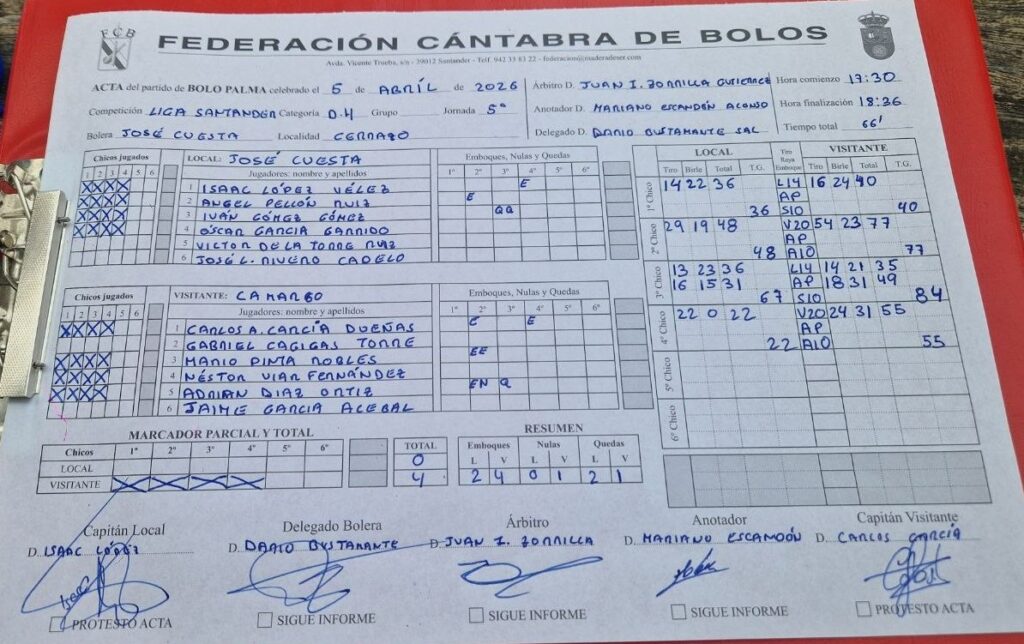 FCB
FEDERACIÓN CÁNTABRA DE BOLOS
Avda. Vicente Trueba, s/n - 39012 Santander - Telf. 942 33 83 22 - federacion@maderadeser.com
ACTA del partido de BOLO PALMA celebrado el 5 de ABRÍL de 2026
Competición LIGA SANTANDER Categoría D.H Grupo Jornada 5ª
Bolera JOSÉ CUESTA Localidad CERRAZO
Árbitro D. JUAN I. ZORRILLA GUTIERREZ
Anotador D. MARIANO ESCANDÓN ALONSO
Delegado D. DARIO BUSTAMANTE SAL
Hora comienzo 17:30
Hora finalización 18:36
Tiempo total 66'
Chicos jugados LOCAL: JOSÉ CUESTA Emboques, Nulas y Quedas
1 2 3 4 5 6 Jugadores: nombre y apellidos 1º 2º 3º 4º 5º 6º
X X X X 1 ISAAC LÓPEZ VÉLEZ E
X X X X 2 ANGEL PELLÓN RUIZ E
X X X X 3 IVÁN GÓMEZ GÓMEZ QQ
X X X X 4 ÓSCAR GARCIA GARRIDO
5 VICTOR DE LA TORRE RUIZ
6 JOSÉ L. RIVERO CADELO
Chicos jugados VISITANTE: CAMARGO Emboques, Nulas y Quedas
1 2 3 4 5 6 Jugadores: nombre y apellidos 1º 2º 3º 4º 5º 6º
X X X X 1 CARLOS A. GARCÍA DUEÑAS E E
2 GABRIEL CAGIGAS TORRE
X X X X 3 MARIO PINTA ROBLES EE
X X X X 4 NÉSTOR VIAR FERNÁNDEZ
X X X X 5 ADRIAN DIAZ ORTIZ EN Q
6 JAIME GARCIA ACEBAL
LOCAL Tiro Raya Emboque VISITANTE
Tiro Birle Total T.G. Tiro Birle Total T.G.
1º Chico 14 22 36 L14 16 24 40
AP
36 S10 40
2º Chico 29 19 48 V20 54 23 77
AP
48 A10 77
3º Chico 13 23 36 L14 14 21 35
16 15 31 AP 18 31 49
67 S10 84
4º Chico 22 0 22 V20 24 31 55
AP
22 A10 55
5º Chico
6º Chico
MARCADOR PARCIAL Y TOTAL
Chicos 1º 2º 3º 4º 5º 6º TOTAL
LOCAL 0
VISITANTE X X X X 4
RESUMEN
Emboques Nulas Quedas
L V L V L V
2 4 0 1 2 1
Capitán Local Delegado Bolera Árbitro Anotador Capitán Visitante
D. ISAAC LÓPEZ D. DARIO BUSTAMANTE D. JUAN I. ZORRILLA D. MARIANO ESCANDÓN D. CARLOS GARCÍA
PROTESTO ACTA SIGUE INFORME SIGUE INFORME SIGUE INFORME PROTESTO ACTA